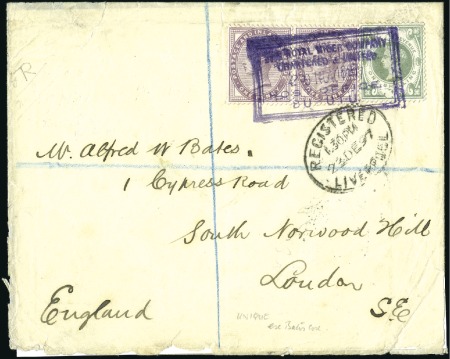 THE ROYAL NIGER COMPANY
CHARTERED & LIMITED
REGISTERED
LIVERPOOL
Mr. Alfred W Bates.
1 Cypress Road
South Norwood Hill
London
England S.E
UNIQUE